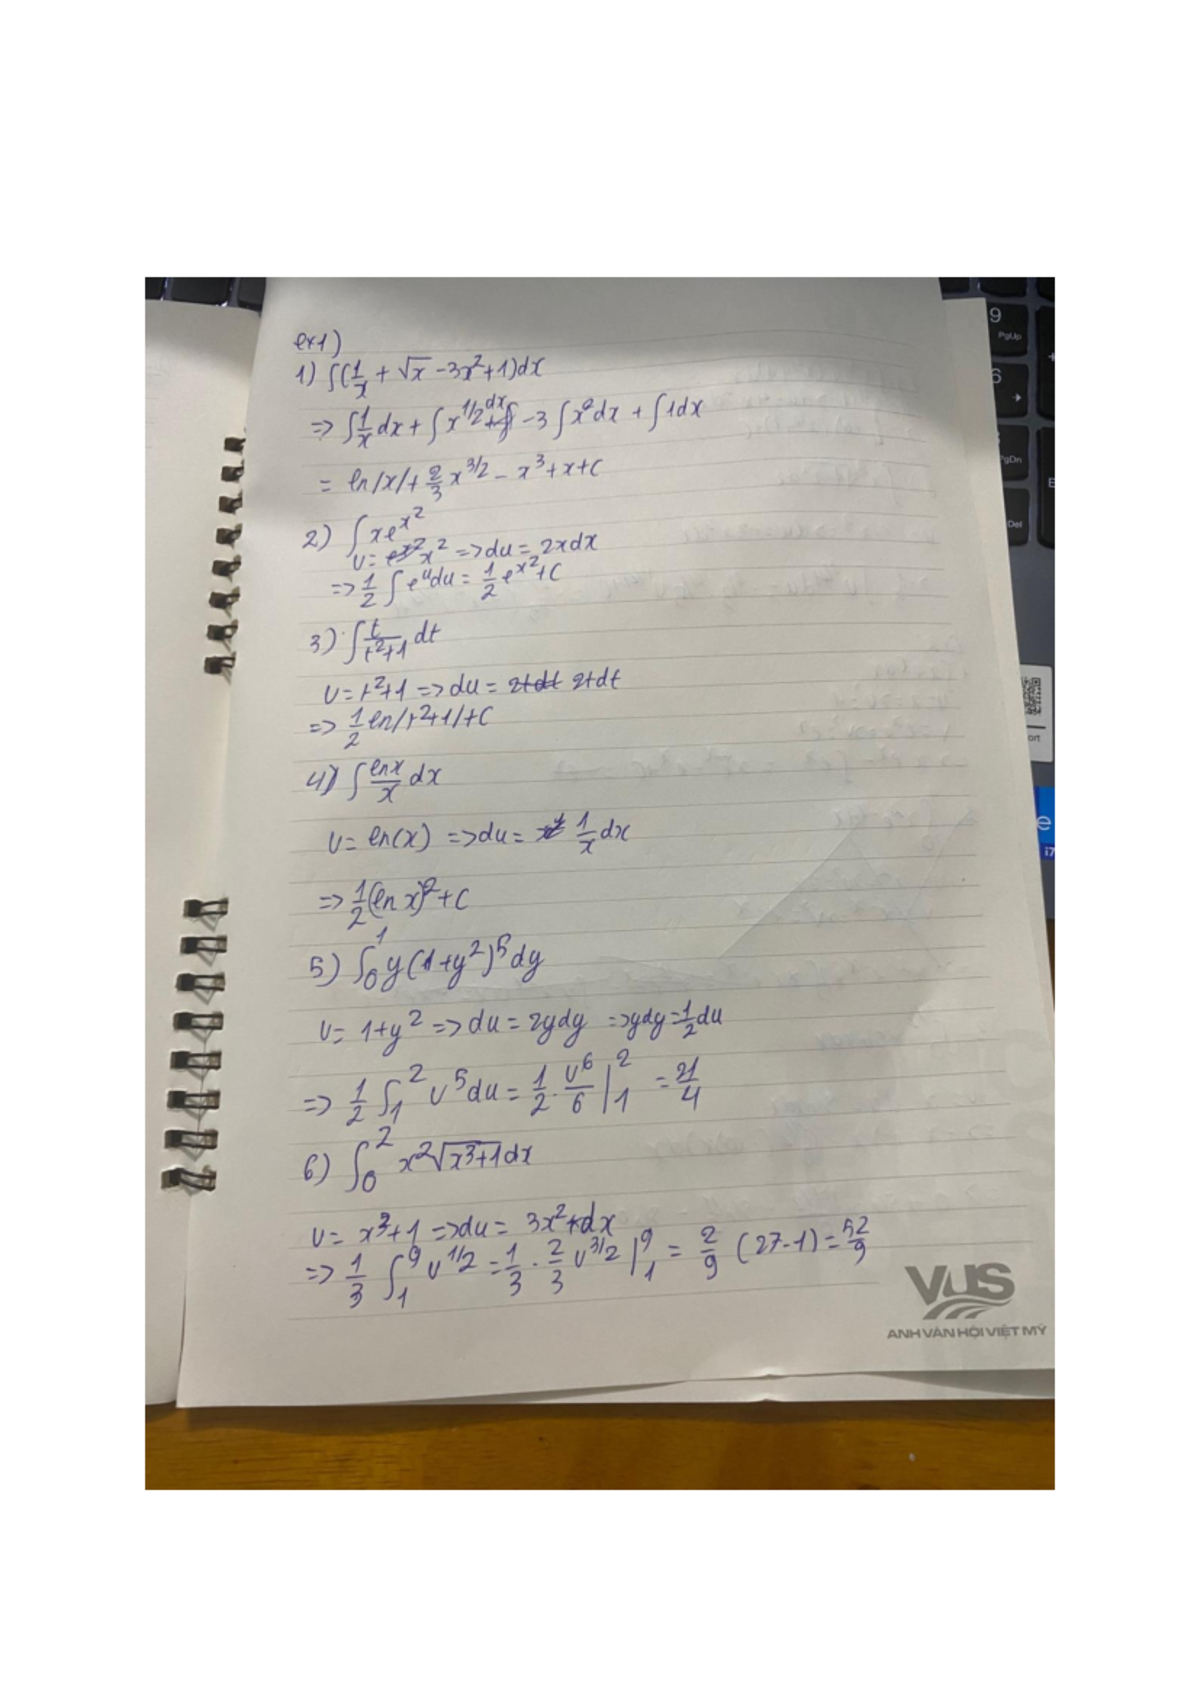 ex1)
1) ∫(1/x + √x - 3x² + 1)dx
=> ∫1/x dx + ∫x^1/2 dx - 3∫x² dx + ∫1dx
= ln/x/ + 2/3 x^3/2 - x³ + x + C
2) ∫xe^x²
u = x² => du = 2xdx
=> 1/2 ∫e^u du = 1/2 e^x² + C
3) ∫t/t²+1 dt
u = t²+1 => du = 2tdt 2tdt
=> 1/2 ln/t²+1/ + C
4) ∫lnx/x dx
u = ln(x) => du = 1/x dx
=> 1/2 (ln x)² + C
5) ∫₀¹ y(1+y²)⁵dy
u = 1+y² => du = 2ydy => ydy = 1/2 du
=> 1/2 ∫₁² u⁵du = 1/2 . u⁶/6 |₁² = 21/4
6) ∫₀² x²√x³+1 dx
u = x³+1 => du = 3x² dx
=> 1/3 ∫₁⁹ u^1/2 = 1/3 . 2/3 u^3/2 |₁⁹ = 2/9 (27-1) = 52/9
VUS
ANH VĂN HỘI VIỆT MỸ
9
PgUp
6
PgDn
Del
ort
e
i7